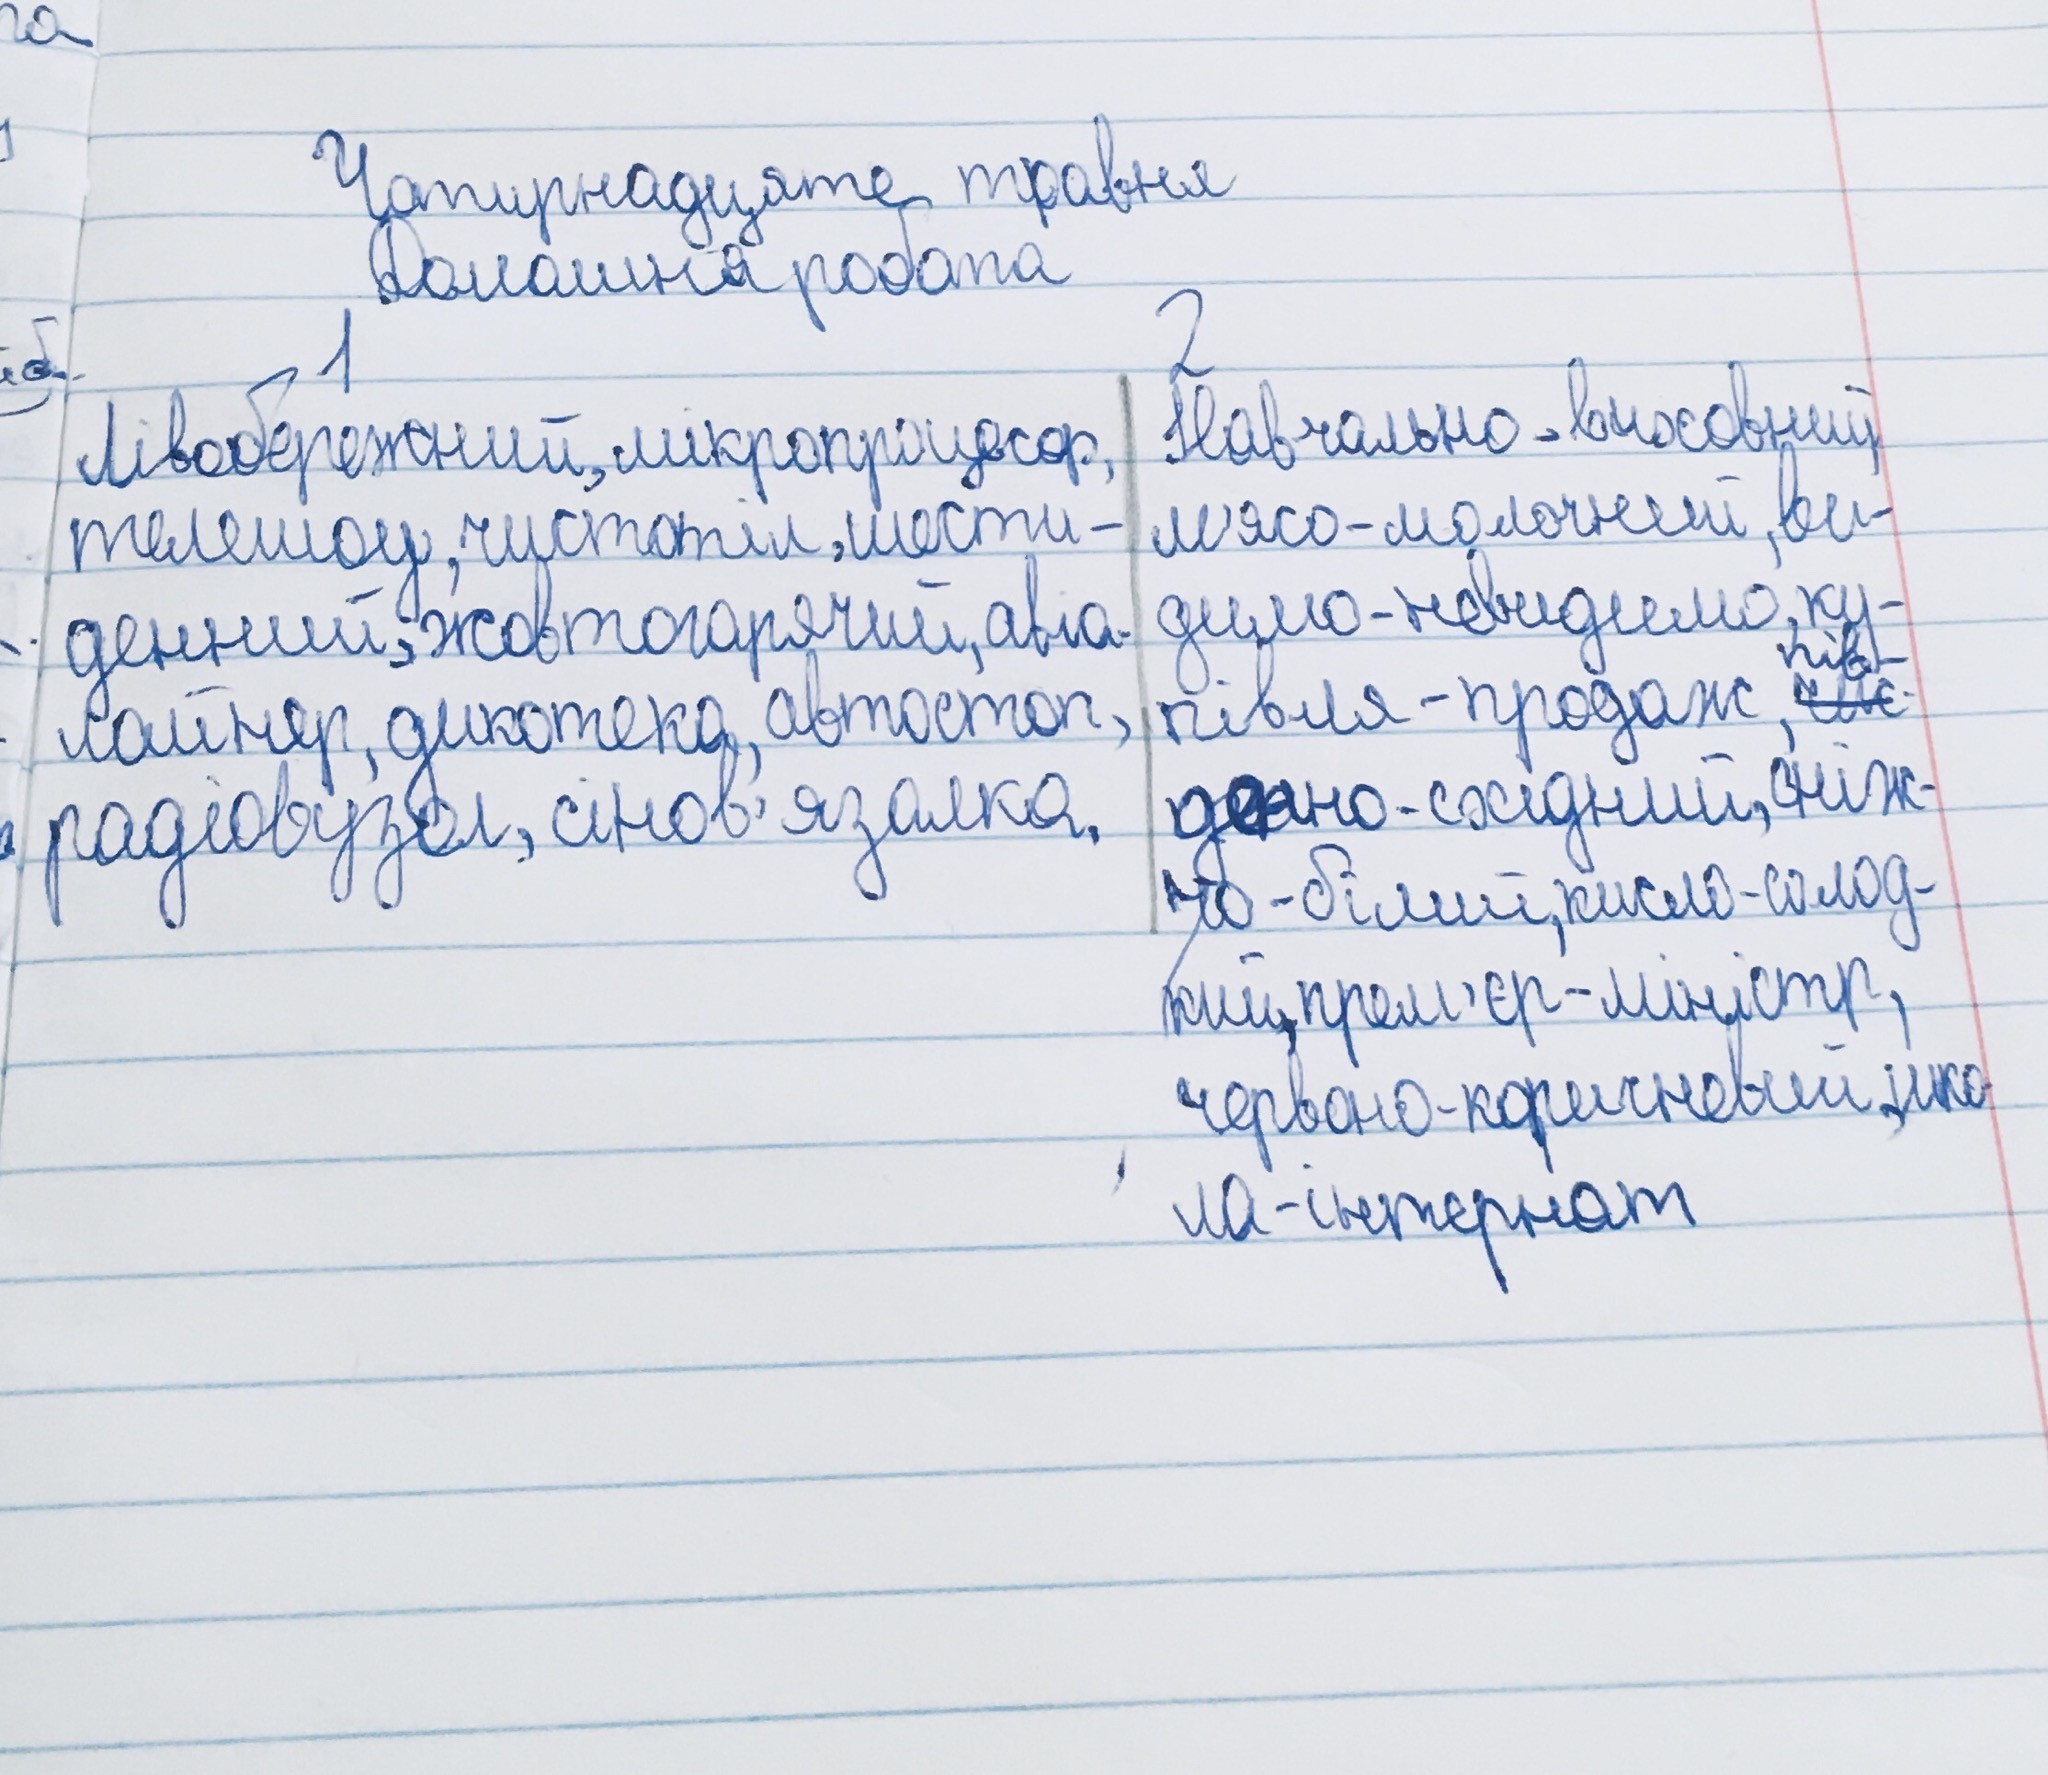 Чотирнадцяте травня
Домашня робота
1
Лівобережний, мікропроцесор,
телешоу, чистотіл, шести-
денний, жовтогарячий, авіа-
лайнер, дикотека, автостоп,
радіовузол, сінов'язалка.
2
Навчально-виховний
м'ясо-молочний, ви-
димо-невидимо, ку-
півля-продаж, пів-
денно-східний, сніж-
но-білий, кисло-солод-
кий, прем'єр-міністр,
червоно-коричневий, шко-
ла-інтернат